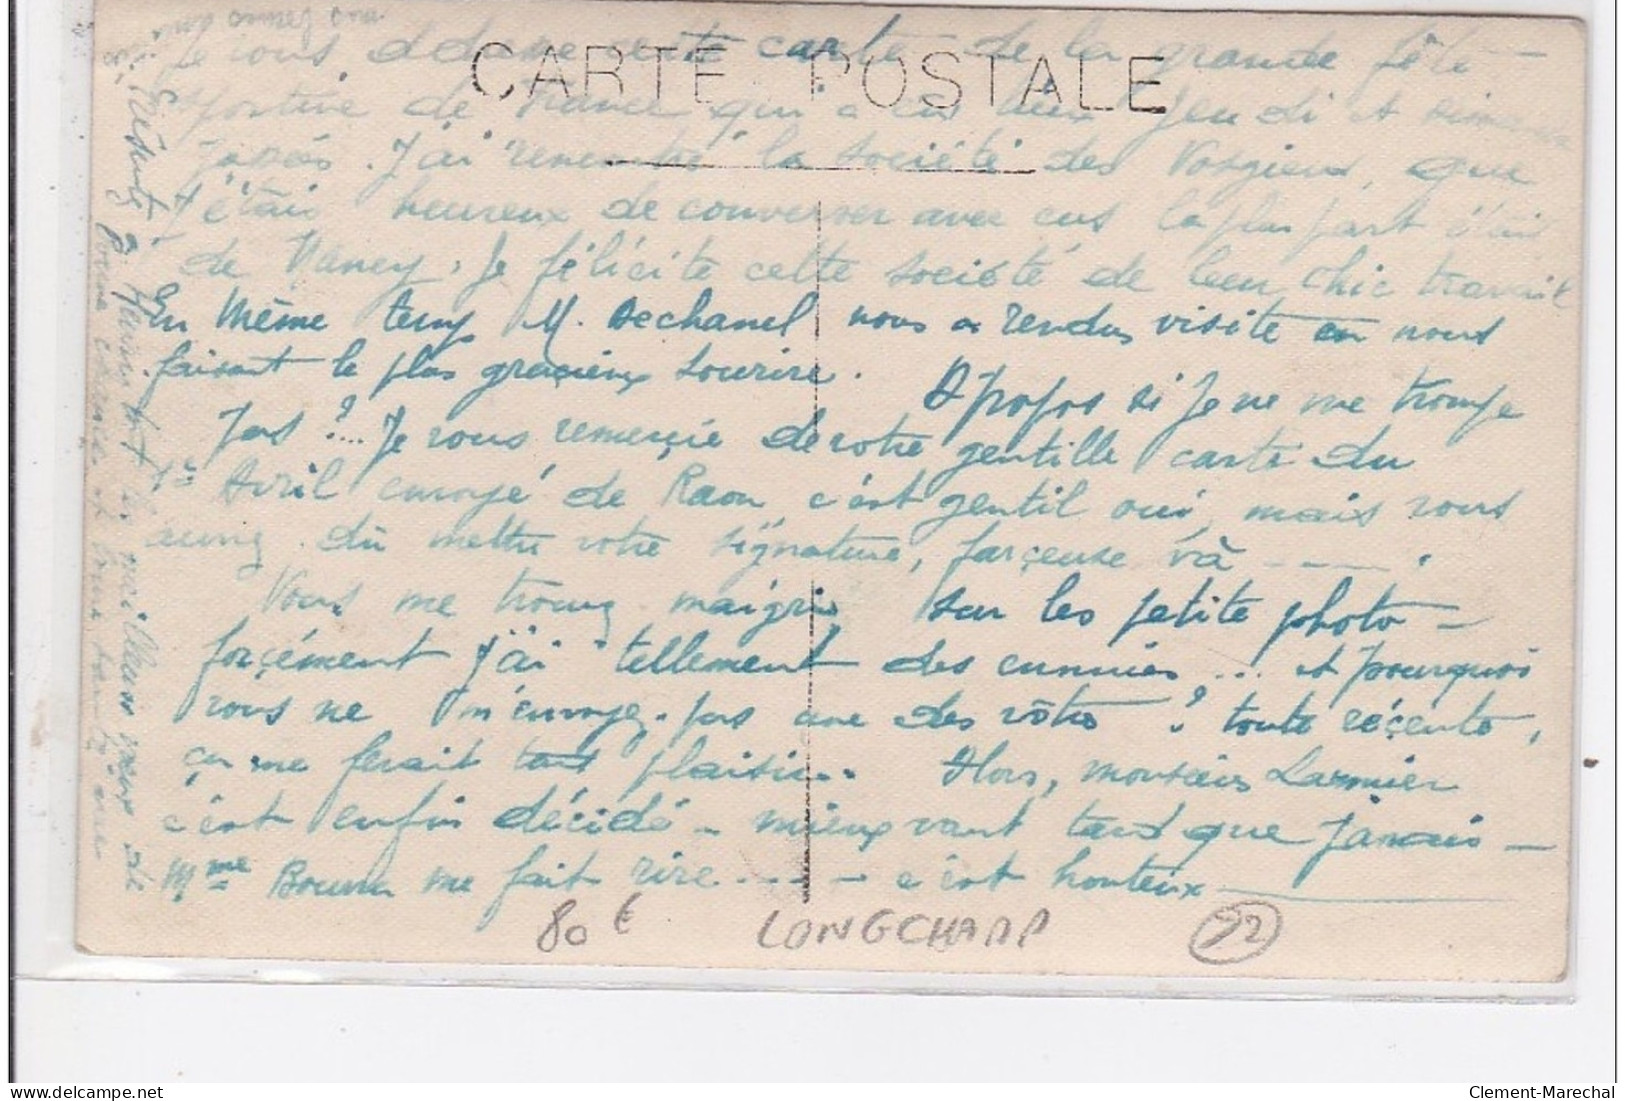 CARTE POSTALE
Je vous donne cette carte de la grande fête
sportive de France qui a eu lieu Jeudi et dimanche
passés. J'ai rencontré la société des Vosgiens, que
J'étais heureux de converser avec eus la plus part était
de Nancy, Je félicite cette société de leur chic travail
En même temp M. Dechanel nous a rendus visite en nous
faisant le plus gracieux sourire. Apropos si Je ne me trompe
pas ?... Je vous remerçie de votre gentille carte du
1er Avril envoyé de Raon c'est gentil oui, mais vous
auriez dû mettre votre signature, farçeuse và ----.
Vous me trouvez maigris, sur les petite photo —
forçément j'äi tellement des ennuies ... et pourquoi
vous ne m'envoyez pas une des vôtres ? toute réçente,
ça me ferait tant plaisir.. Alors, monsieur Larmier
c'est enfin décidé — mieux vaut tard que Jamais —
Mme Bouna me fait rire ---- c'est honteux
80 € LONGCHAMP 92
meilleurs vœux de
bonne santé
Clement-Marechal